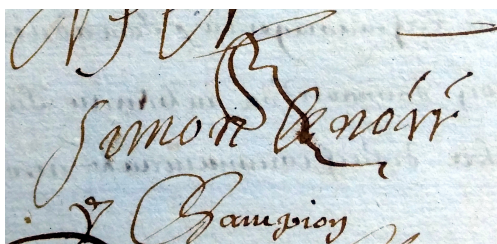 Simon Lenoir
Champion